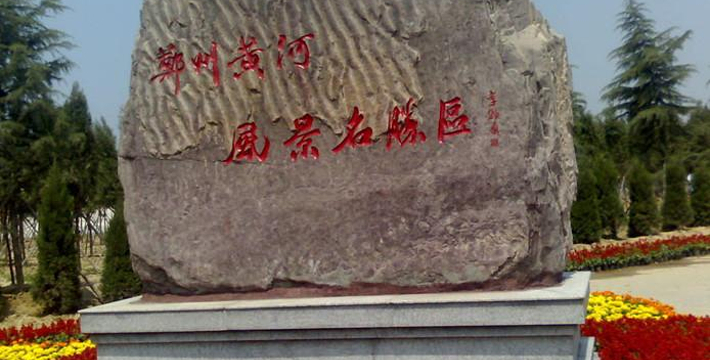 鄭州黄河
風景名勝區